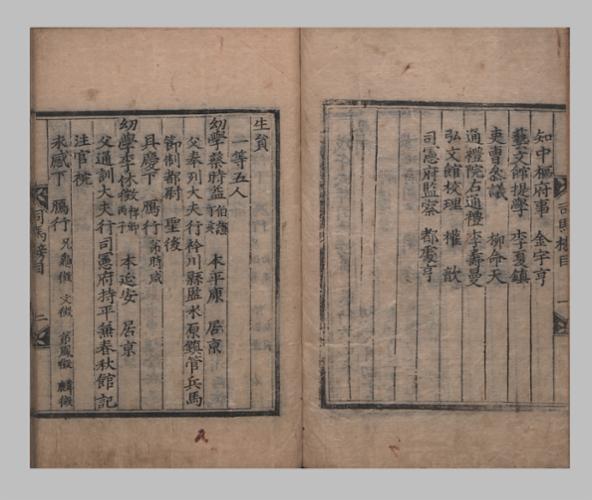 知中樞府事 金宇亨
藝文館提學 李夏鎭
吏曹參議 柳命天
通禮院右通禮 李壽曼
弘文館校理 權歆
司憲府監察 都慶亨
司馬榜目 一
生員
一等五人
幼學蔡時益 伯謙 本平康 居京
父奉列大夫行衿川縣監水原鎭管兵馬
節制都尉 聖後
具慶下 鴈行 弟時咸
幼學李休徵 丙子 本延安 居京
父通訓大夫行司憲府持平兼春秋館記
注官
永感下 鴈行 兄 徵 文徵 弟鳳徵 麟徵
司馬榜目 二